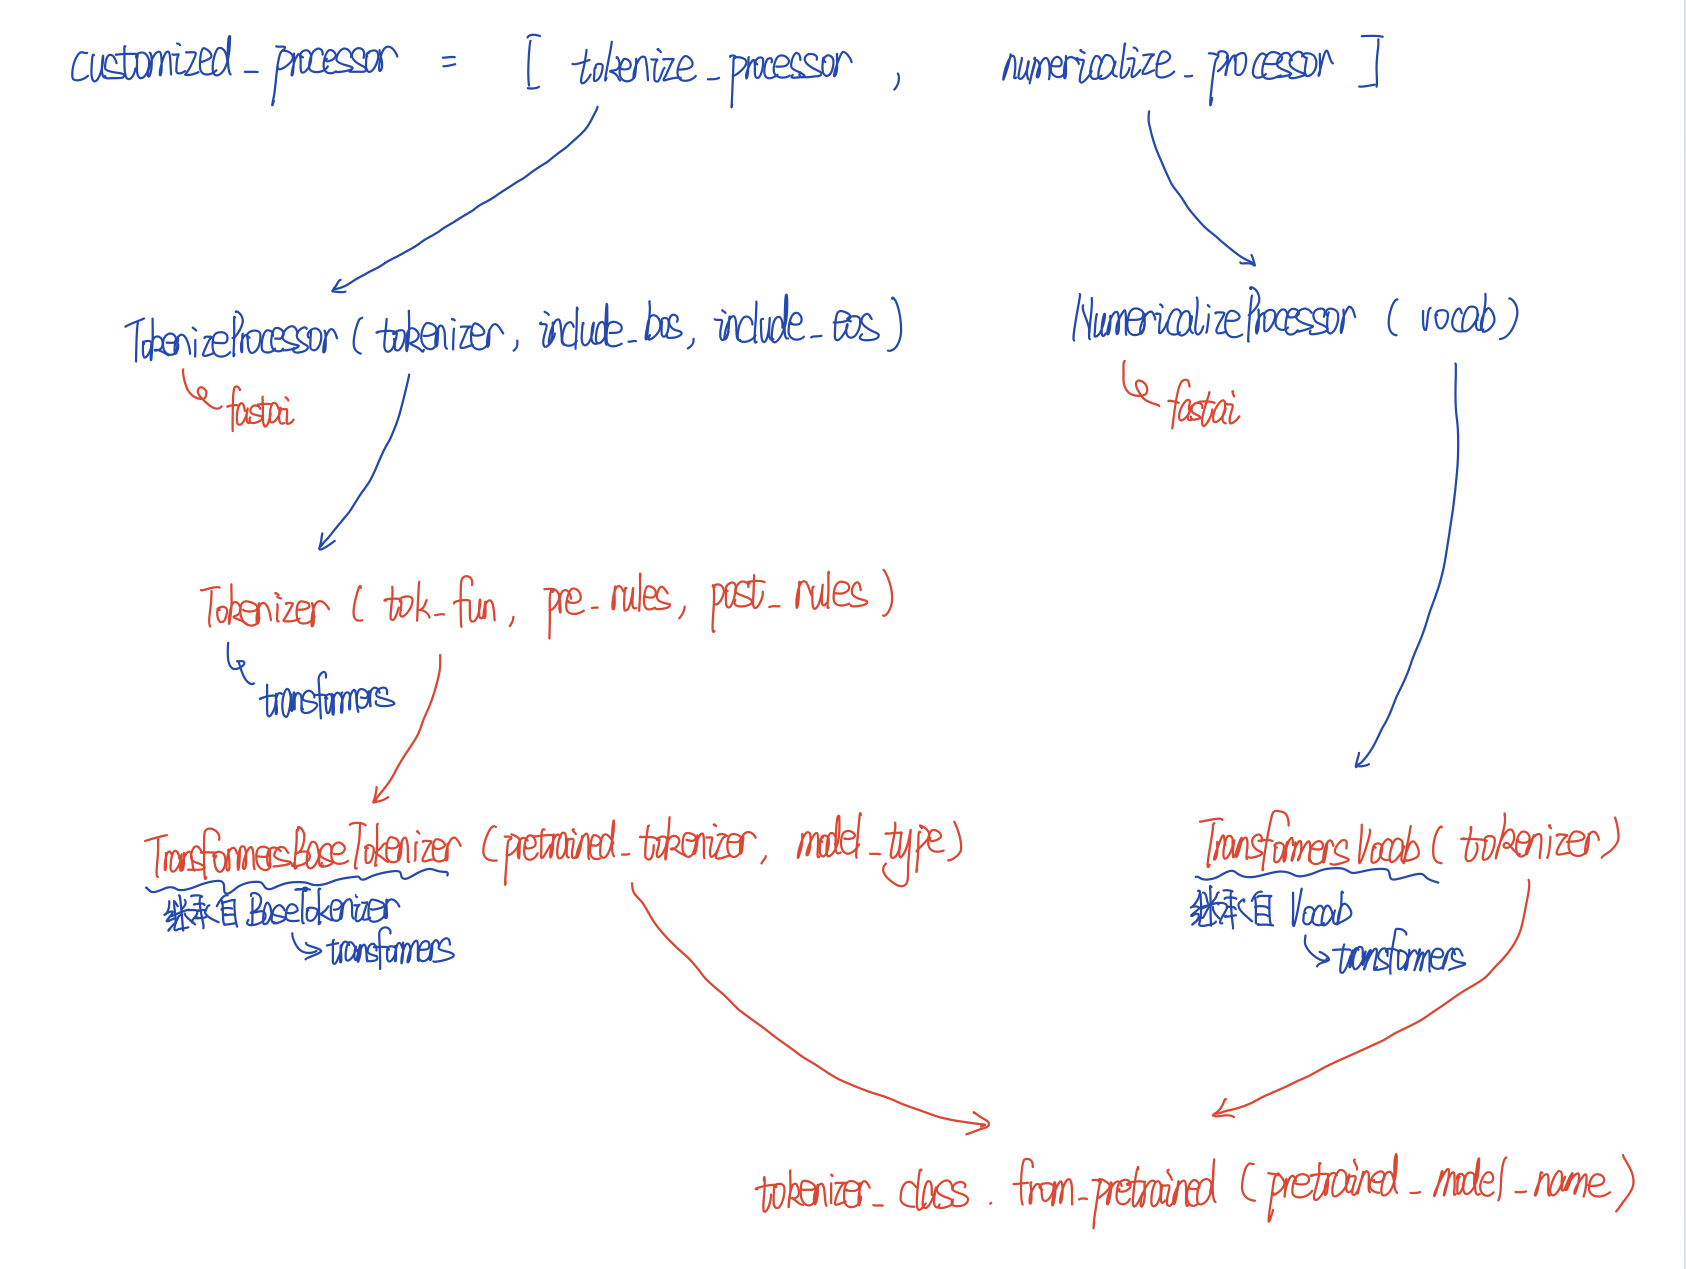 customized_processor = [ tokenize_processor , numericalize_processor ]
TokenizeProcessor ( tokenizer, include_bos, include_eos )
NumericalizeProcessor ( vocab )
fastai
fastai
Tokenizer ( tok_fun, pre_rules, post_rules )
transformers
TransformersBaseTokenizer (pretrained_tokenizer, model_type)
TransformersVocab ( tokenizer )
继承自 BaseTokenizer
继承自 Vocab
transformers
transformers
tokenizer_class . from_pretrained ( pretrained_model_name )